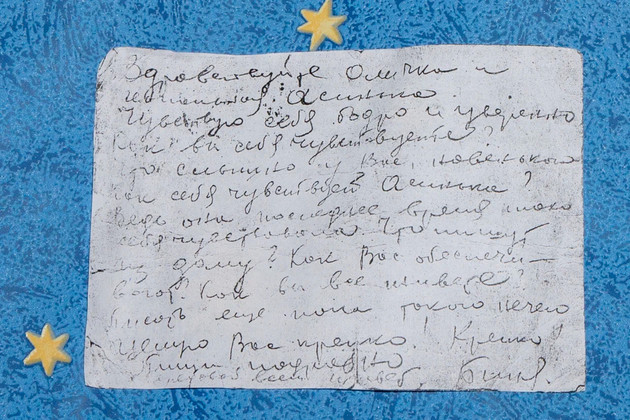 Здравствуйте Оличка и
Асинька.
Чувствую себя бодро и уверенно
Как вы себя чувствуете?
Что слышно у Вас, новенького
как себя чувствует Асинька?
Ведь она последнее время плохо
себя чувствовала. Что пишут
из дому? Как Вас обеспечи-
вают? Как вы все живете?
Писать еще пока такого нечего
Целую Вас крепко! Крепко
Пиши подробно
всем привет